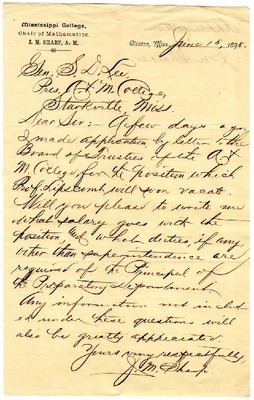 Mississippi College,
Chair of Mathematics.
J. M. SHARP, A. M.
Clinton, Miss., June 15, 1895.
Gen. S. D. Lee
Pres. A & M College,
Starkville, Miss.
Dear Sir:- A few days ago
I made application by letter to the
Board of Trustees of the A &
M. College for the position which
Prof. Lipscomb will soon vacate.
Will you please to write me
what salary goes with the
position and what duties, if any
other than superintendence are
required of the Principal of
the Preparatory Department.
Any information not includ-
ed under these questions will
also be greatly appreciated.
Yours very respectfully,
J. M. Sharp